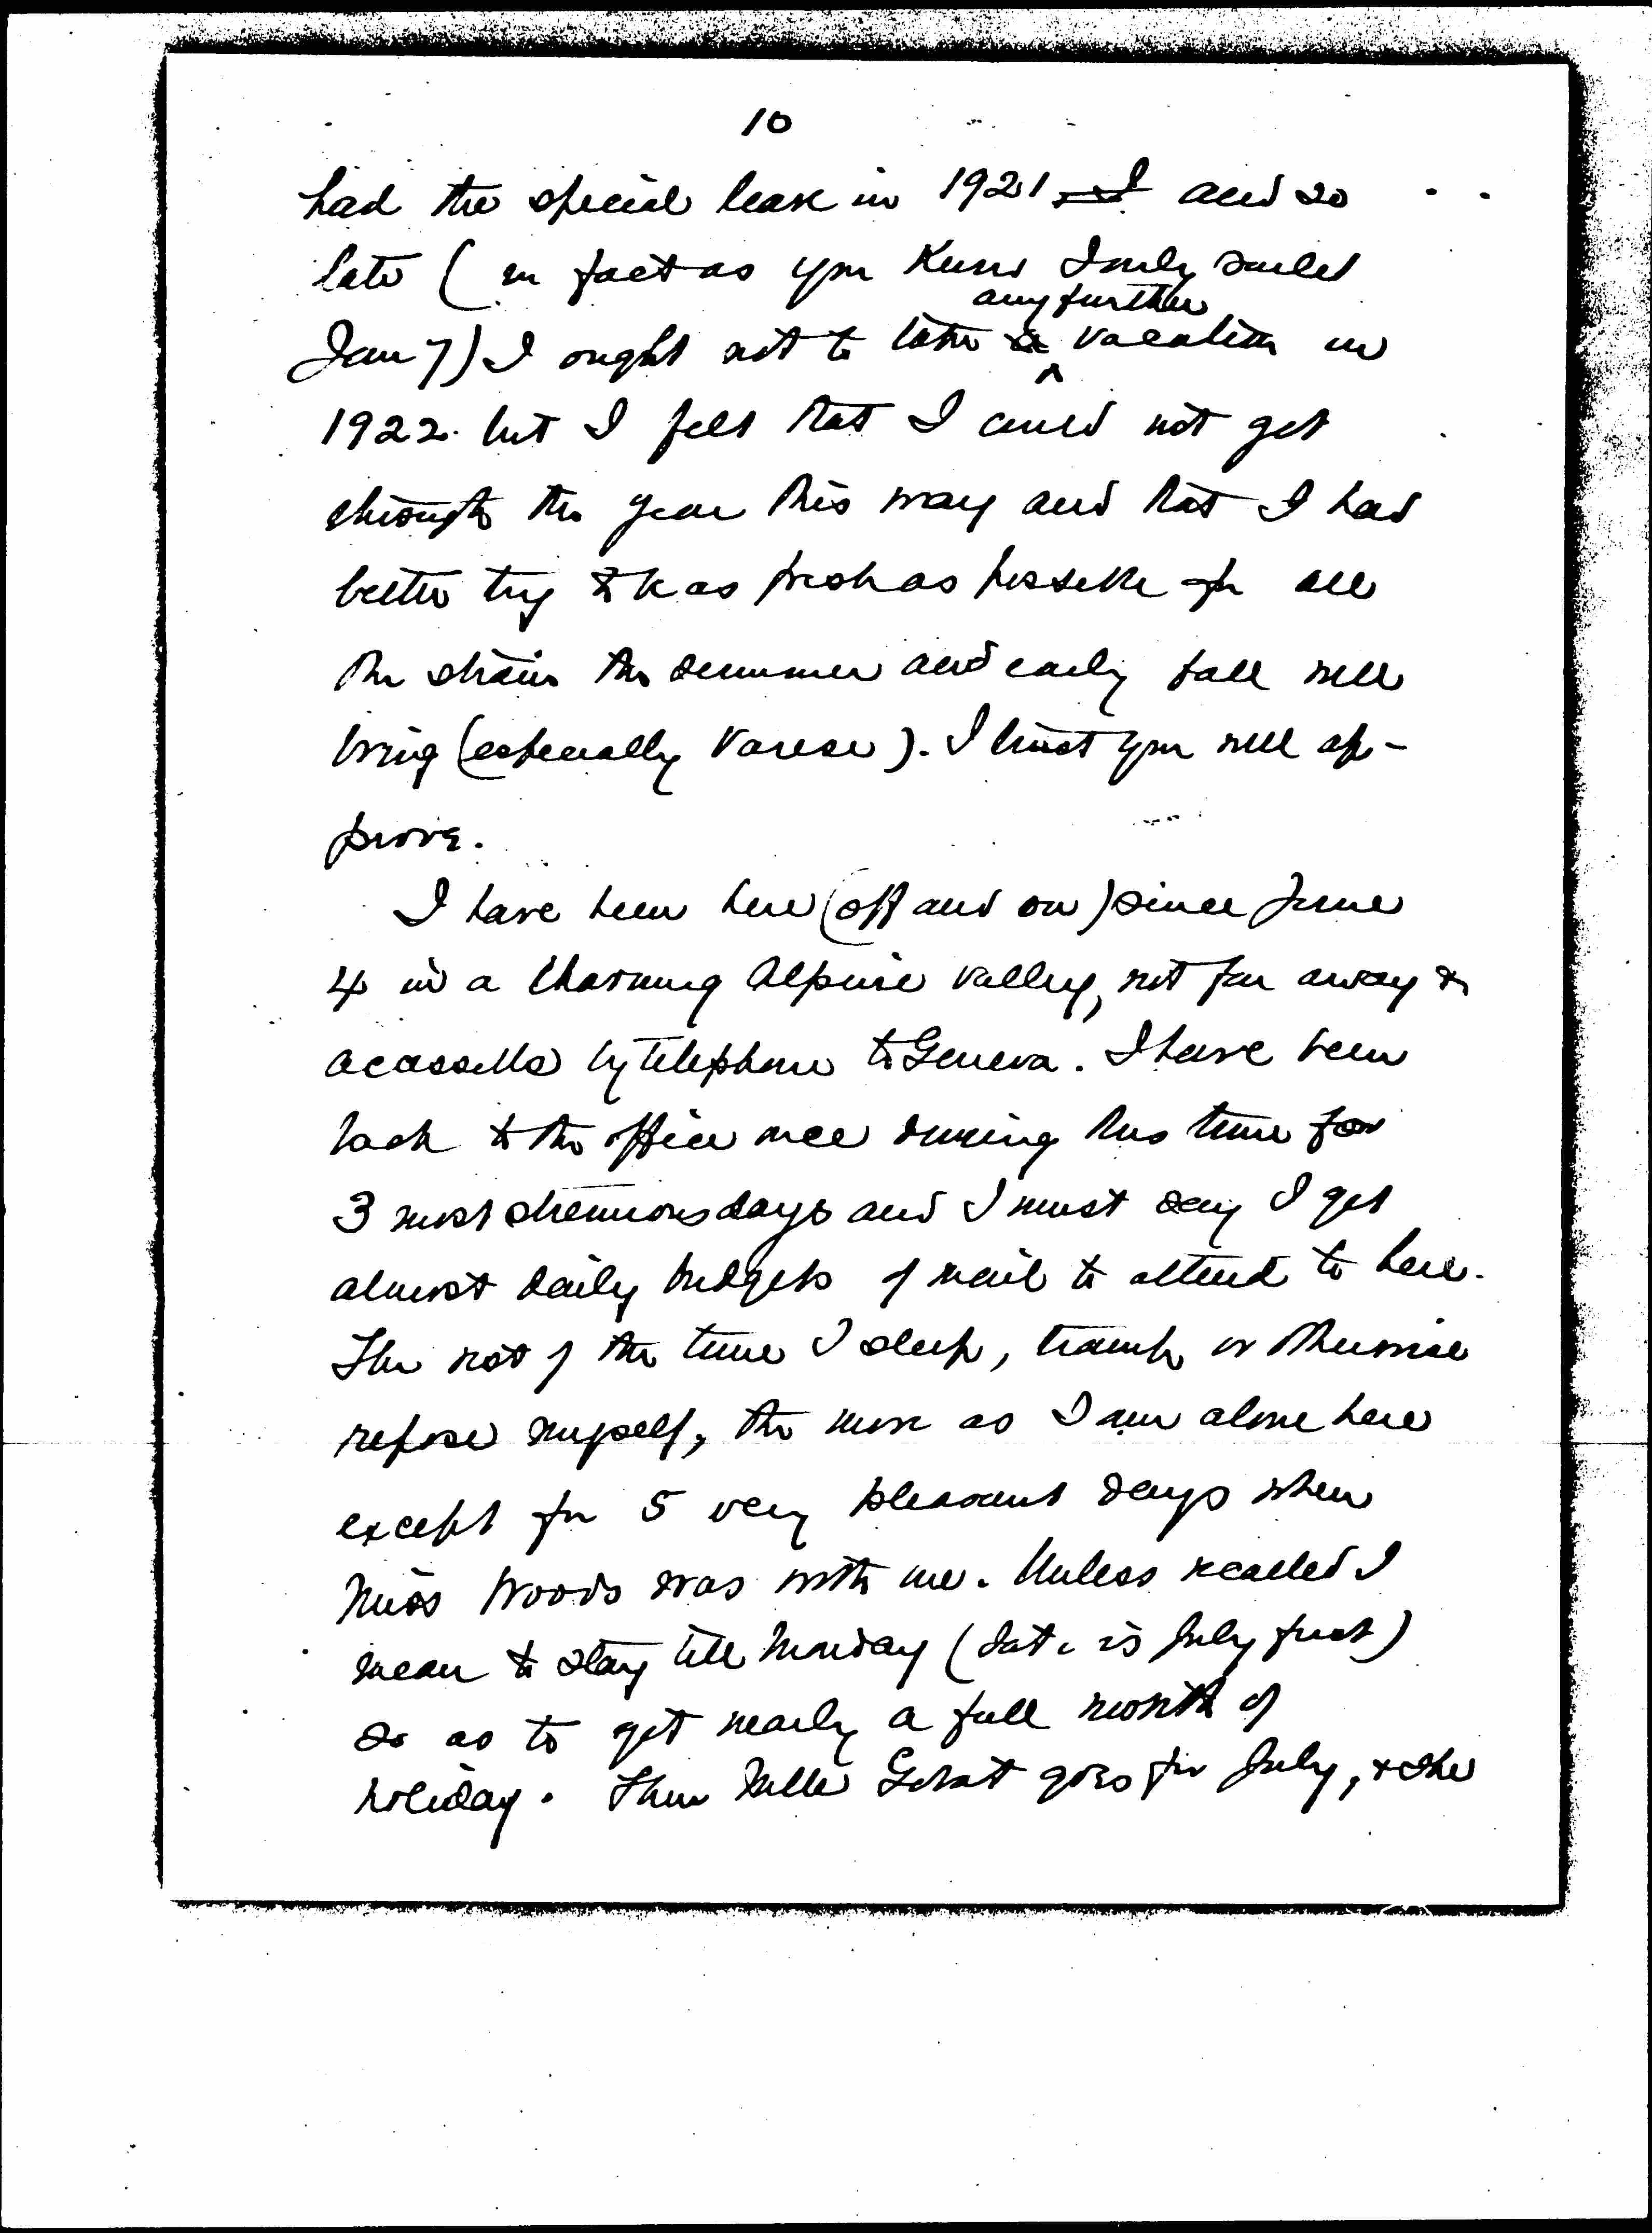 10
had the special leave in 1921 I and so
late (in fact as you know I only sailed
any further
Jan 7) I ought not to take a vacation in
1922. but I felt that I could not get
through the year this way and that I had
better try to be as fresh as possible for all
the strain the summer and early fall will
bring (especially Varese). I trust you will ap-
prove.
I have been here (off and on) since June
4 in a charming Alpine valley, not far away &
accessible by telephone to Geneva. I have been
back to the office once during this time for
3 most strenuous days and I must say I get
almost daily budgets of mail to attend to here.
The rest of the time I sleep, tramp or otherwise
repose myself, the more as I am alone here
except for 5 very pleasant days when
Miss Woods was with me. Unless recalled I
mean to stay till Monday (date is July first)
so as to get nearly a full month of
holiday. Then Mlle Gobat goes for July, & she